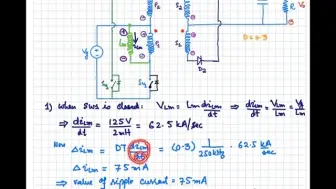 Vg
Lm
D2
R
D = 0.3
1) when sw3 is closed: VLm = Lm diLm/dt ⇒ diLm/dt = VLm/Lm = Vg/Lm
⇒ diLm/dt = 125V/2mH = 62.5 kA/sec
Now ΔiLm = DT diLm/dt = (0.3) 1/250kHz . 62.5 kA/sec
ΔiLm = 75mA
⇒ value of ripple current = 75mA